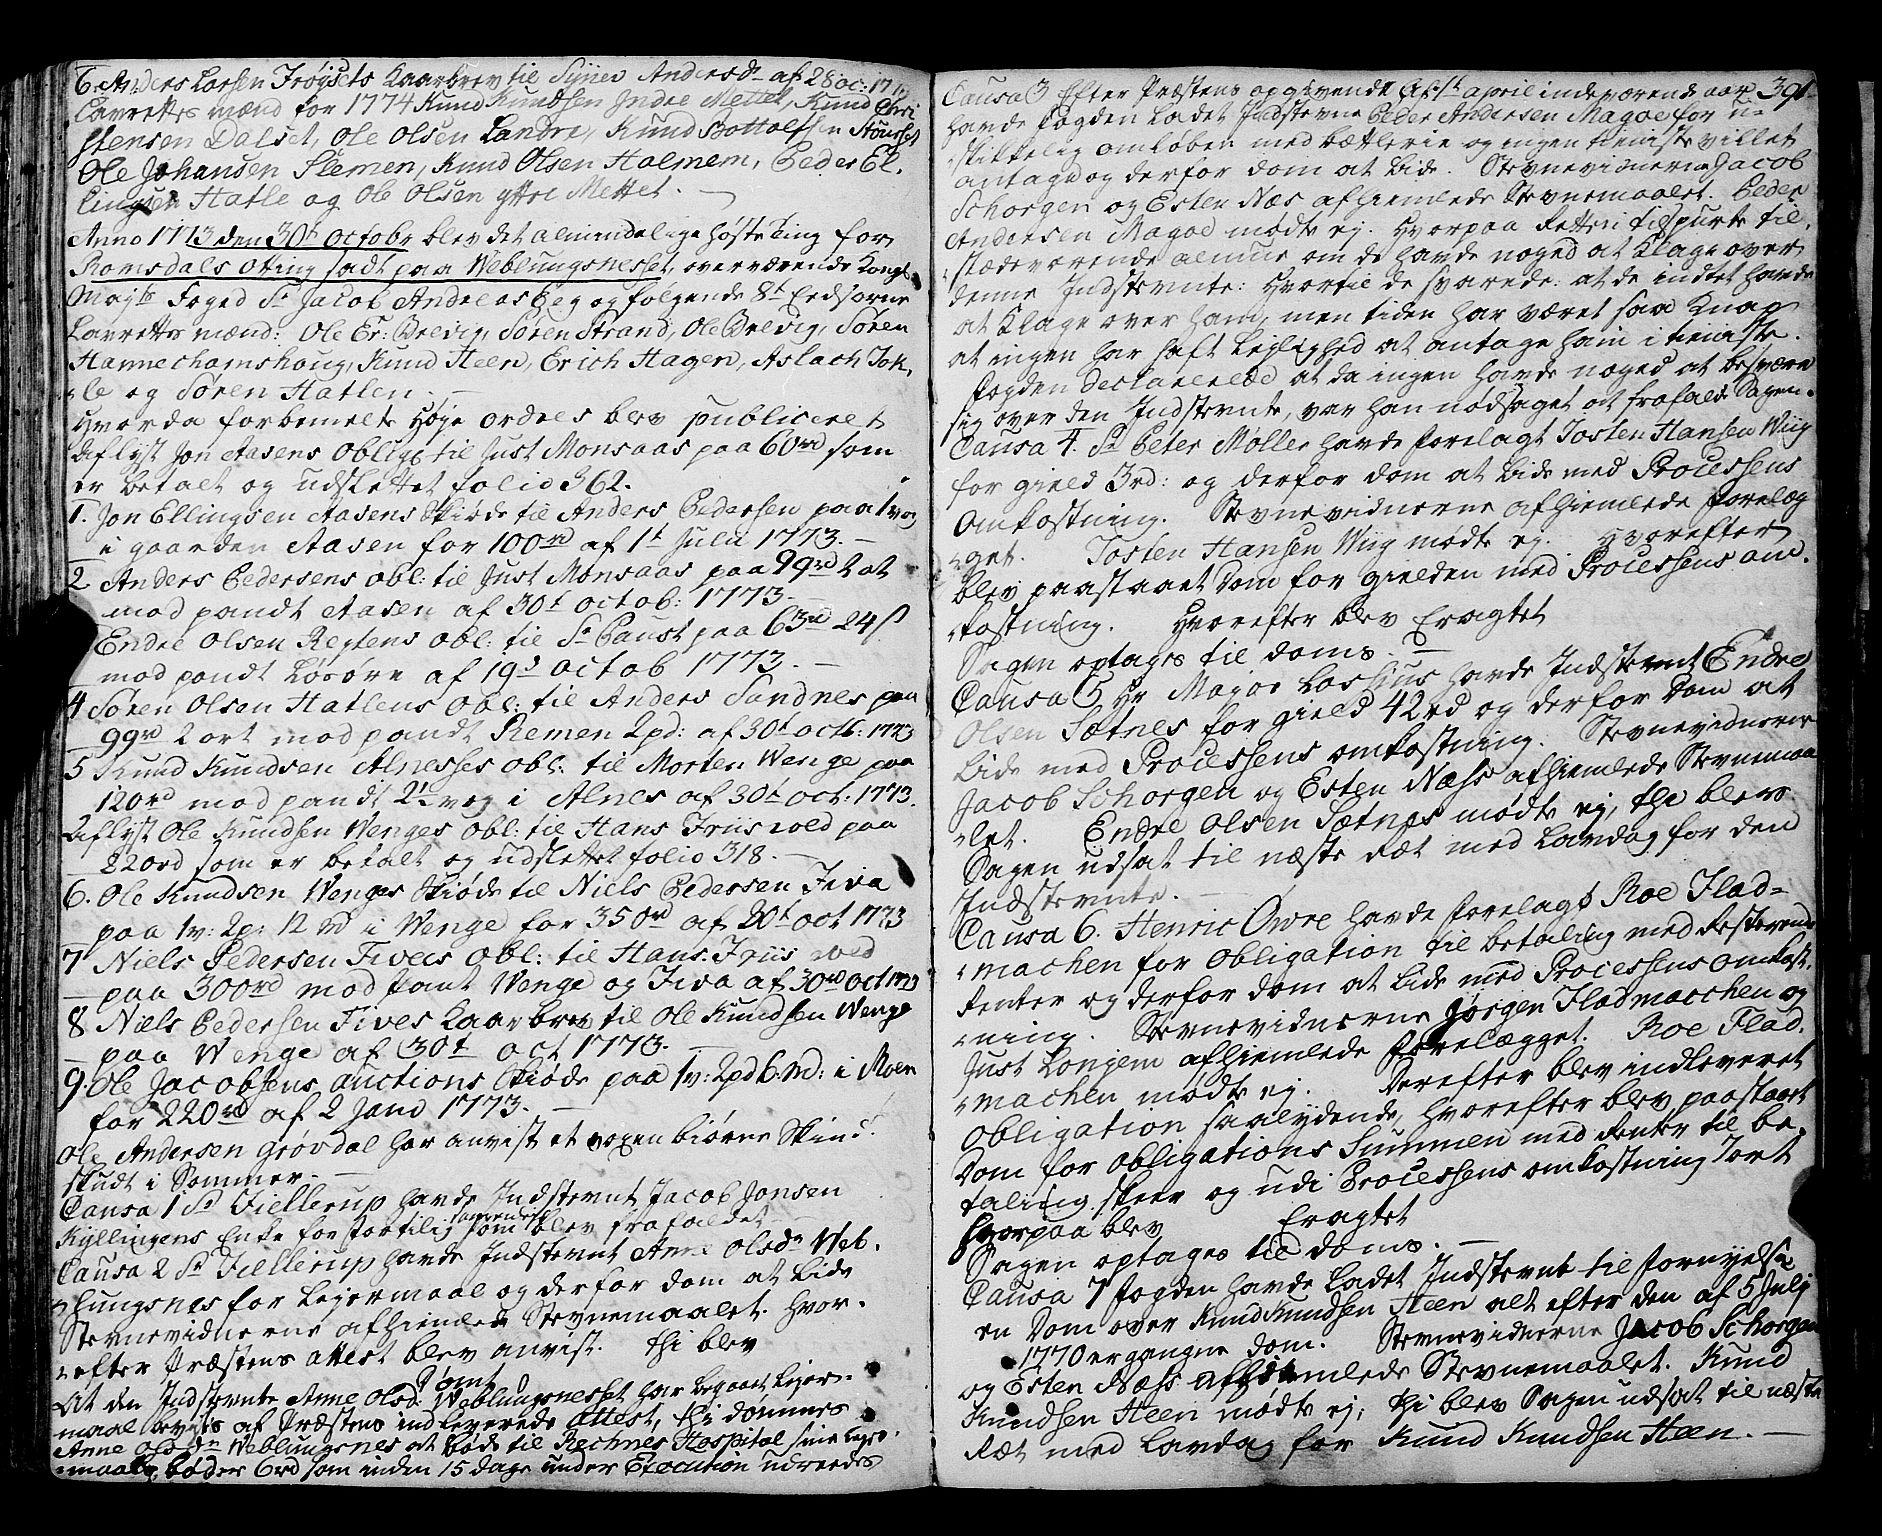 6. Anders Larsen Frøysets Kaarbrev til Synev Andersd. af 28 oc: 17
Lavrettes mænd for 1774 Knud Knudsen Indre Mettet, Knud Chri
stensen Dalset, Ole Olsen Landre, Knud Bottolfsen
Ole Johansen Slemen, Knud Olsen Holmem, Peder El.
lingsen Hatle og Ole Olsen yttre Mettet.
Anno 1773 den 30t octobr blev det almindelige høste Ting for
Romsdals Otting sadt paa Weblungsnesset, overværende Kongl.
Majts Foged Sr Jacob Andreas Beg og følgende 8t Eedsorne
Lavrettes mænd: Ole Er: Brevig, Søren Strand, Ole Brevig, Søren
Hannechamshoug, Knud Heen, Erich Hagen, Aslach Jok,
le og Søren Hatlen.
Hvorda forbemelte Høje ordres blev publiceret
Aflyst Jon Aasens Oblig: til Just Monsaas paa 60rd som
er betalt og udslettet folio 362.
1. Jon Ellingsen Aasens Skiøde til Anders Pedersen paa 1 vog
i gaarden Aasen for 100rd af 1t Julii 1773.
2 Anders Pedersens obl: til Just Monsaas paa 99rd 2 ot
mod pandt Aasen af 30t octob: 1773.
Endre Olsen Regtens obl: til Sr Paust paa 63rd 24 s
mod pandt Løsøre af 19d octob 1773.
4 Søren Olsen Hatlens obl: til Anders Sandnes paa
99rd 2 ort mod pandt Remen 2pd: af 30t octb: 1773
5 Knud Knudsen Alnesses obl: til Morten Wenge paa
120rd mod pandt 2 1/2 vog i Alnes af 30t oct: 1773.
Aflyst Ole Knudsen Wenges obl: til Hans Friisvold paa
220rd som er betalt og udslettet folio 318.
6. Ole Knudsen Wenges Skiøde til Niels Pedersen Fiva
paa 1v: 2p: 12 md i Wenge for 350rd af 20t oct 1773
7 Niels Pedersen Fives obl: til Hans Friisvold
paa 300rd mod Pant Wenge og Fiva af 30rd oct 1773
8 Niels Pedersen Fives Kaarbrev til Ole Knudsen Wenge
paa Wenge af 30t oct 1773.
9. Ole Jacobsens auctions Skiøde paa 1v: 2pd 6. md: i Moen
for 220rd af 2 Janu 1773.
Ole Andersen Grøvdal har anvist et voxen biørne Skind
skudt i Sommer.
Causa 1 Sr Fiellerup havde Indstevnt Jacob Jonsen
Kyllingens Enke for fortilig som blev frafaldet
Causa 2 Sr Fiellerup havde Indstevnt Anne Olsdr Web.
lungsnes for Lejermaal og derfor dom at lide
Stevnevidnerne afhiemlede Stevnemaalet. Hvor.
efter Præstens attest blev anvist. Thi blev
Dømt
At den Indstevnte Anne Olsd: Weblungsnesset har begaaet Lejer.
maal bevises af Præstens indleverede Attest, thi dømmes
Anne Olsdr Weblungsnes at bøde til Rechnes Hospital sine Lejer.
maals bøder 6rd som inden 15 dage under Execution udreedes
391.
Causa 3 Efter Præstens opgivende af 1t april indeværende aar
havde fogden ladet Indstevne Peder Andersen Magoe for u-
skikkelig omløben med bætlerie og ingen tieniste villet
antage og derfor dom at lide. Stevnevidnerne Jacob
Schorgen og Esten Næs afhiemlede Stevnemaalet. Peder
Andersen Magoe mødte ej. Hvorpaa Retten tilspurte til.
stædeværende almue om de havde noged at klage over
denne Indstevnte: Hvortil de svarede: at de indtet havde
at klage over ham, men tiden har været saa knap
at ingen har haft lejlighed at antage ham i tieniste.
Fogden declarerede at da ingen havde noged at besvære
sig over den Indstevnte, var han nødsaget at frafalde Sagen.
Causa 4. Sr Peter Møller havde forelagt Tosten Hansen Wiig
for gield 3rd: og derfor dom at lide med Processens
Omkostning. Stevnevidnerne afhiemlede forelæg
get. Tosten Hansen Wiig mødte ej. Hvorefter
blev paastaaet Dom for gielden med Processens om.
kostning. Hvorefter blev Eragtet
Sagen optages til doms.
Causa 5 Hr Major Loshius havde Indstevnt Endre
Olsen Sætnes for gield 42rd og derfor Dom at
lide med Processens omkostning. Stevnevidnerne
Jacob Schorgen og Esten Næss afhiemlede Stevnemaa
let. Endre Olsen Sætnes mødte ej, thi blev
Sagen udsat til næste Ræt med Lavdag for den
Indstevnte.
Causa 6. Henric Owre havde forelagt Roe Flad-
machen for obligation til betaling med resterende
Renter og derfor dom at lide med Processens omkost.
ning. Stevnevidnerne Jørgen Fladmacchen og
Just Lonjem afhiemlede forelægget. Roe Flad.
machen mødte ej. Derefter blev indleveret
obligation saalydende, hvorefter blev paastaaet
Dom for obligations Summen med Renter til be.
taling skeer og udi Processens omkostning Tort
Hvorpaa blev Eragtet
Sagen optages til doms.
Causa 7 fogden havde ladet Indstevnt til fornyelse
en Dom over Knud Knudsen Heen alt efter den af 5 Julij
1770 ergangne dom. Stevnevidnerne Jacob Schorgen
og Esten Næss afhiemlede Stevnemaalet. Knud
Knudsen Heen mødte ej; thi blev Sagen udsat til næste
Ræt med Lavdag for Knud Knudsen Heen.